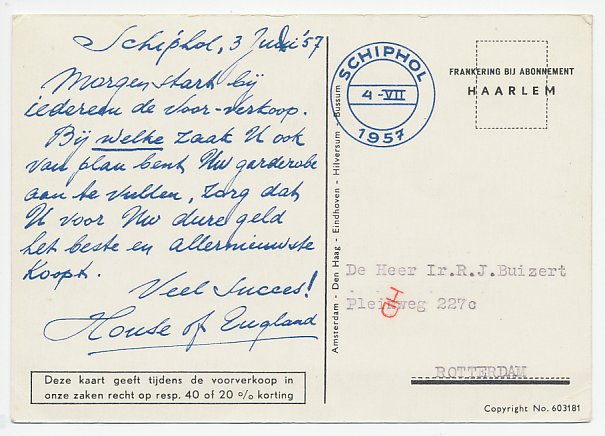 Schiphol, 3 Juli '57
Morgen start bij
iedereen de voor-verkoop.
Bij welke zaak U ook
van plan bent Uw garderobe
aan te vullen, zorg dat
U voor Uw dure geld
het beste en allernieuwste
koopt.
Veel succes!
House of England
Deze kaart geeft tijdens de voorverkoop in
onze zaken recht op resp. 40 of 20 % korting
Amsterdam - Den Haag - Eindhoven - Hilversum - Bussum
SCHIPHOL
4 -VII
1957
FRANKERING BIJ ABONNEMENT
HAARLEM
De Heer Ir.R.J.Buizert
Pleinweg 227c
ROTTERDAM
Copyright No. 603181